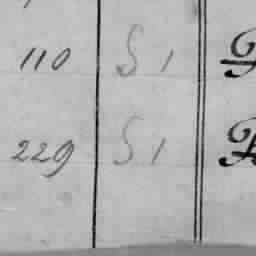 110 S 1
229 S 1